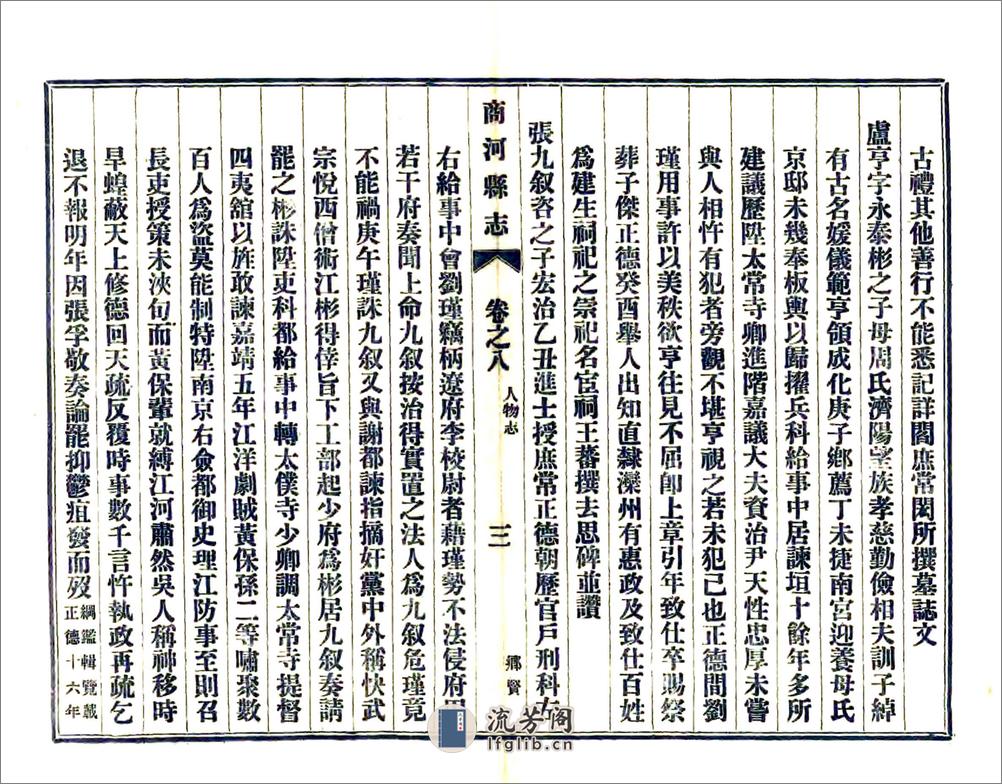 古禮其他善行不能悉記詳閣庶常閎所撰墓誌文
盧亨字永泰彬之子母周氏濟陽望族孝慈勤儉相夫訓子綽
有古名媛儀範亨領成化庚子鄉薦丁未捷南宮迎養母氏
京邸未幾奉板輿以歸擢兵科給事中居諫垣十餘年多所
建議歷陞太常寺卿進階嘉議大夫資治尹天性忠厚未嘗
與人相忤有犯者旁觀不堪亨視之若未犯己也正德間劉
瑾用事許以美秩欲亨往見不屈卽上章引年致仕卒賜祭
葬子傑正德癸酉舉人出知直隸灤州有惠政及致仕百姓
爲建生祠祀之崇祀名宦祠王蕃撰去思碑並讚
張九叙咨之子宏治乙丑進士授庶常正德朝歷官戶刑科左
商河縣志
卷之八
人物志
三
鄉賢
右給事中會劉瑾竊柄遼府李校尉者藉瑾勢不法侵府
若干府奏聞上命九叙按治得實置之法人爲九叙危瑾竟
不能禍庚午瑾誅九叙又與謝都諫指摘奸黨中外稱快武
宗悅西僧術江彬得倖旨下工部起少府爲彬居九叙奏請
罷之彬誅陞吏科都給事中轉太僕寺少卿調太常寺提督
四夷舘以旌敢諫嘉靖五年江洋劇賊黃保孫二等嘯聚數
百人爲盜莫能制特陞南京右僉都御史理江防事至則召
長吏授策未浹旬而黃保輩就縛江河肅然吳人稱神移時
旱蝗蔽天上修德回天疏反覆時事數千言忤執政再疏乞
退不報明年因張孚敬奏論罷抑鬱疽發而歿綱鑑輯覽載
正德十六年
流芳阁
lfglib.cn